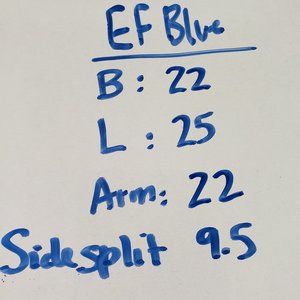 EF Blue
B: 22
L: 25
Arm: 22
Sidesplit 9.5